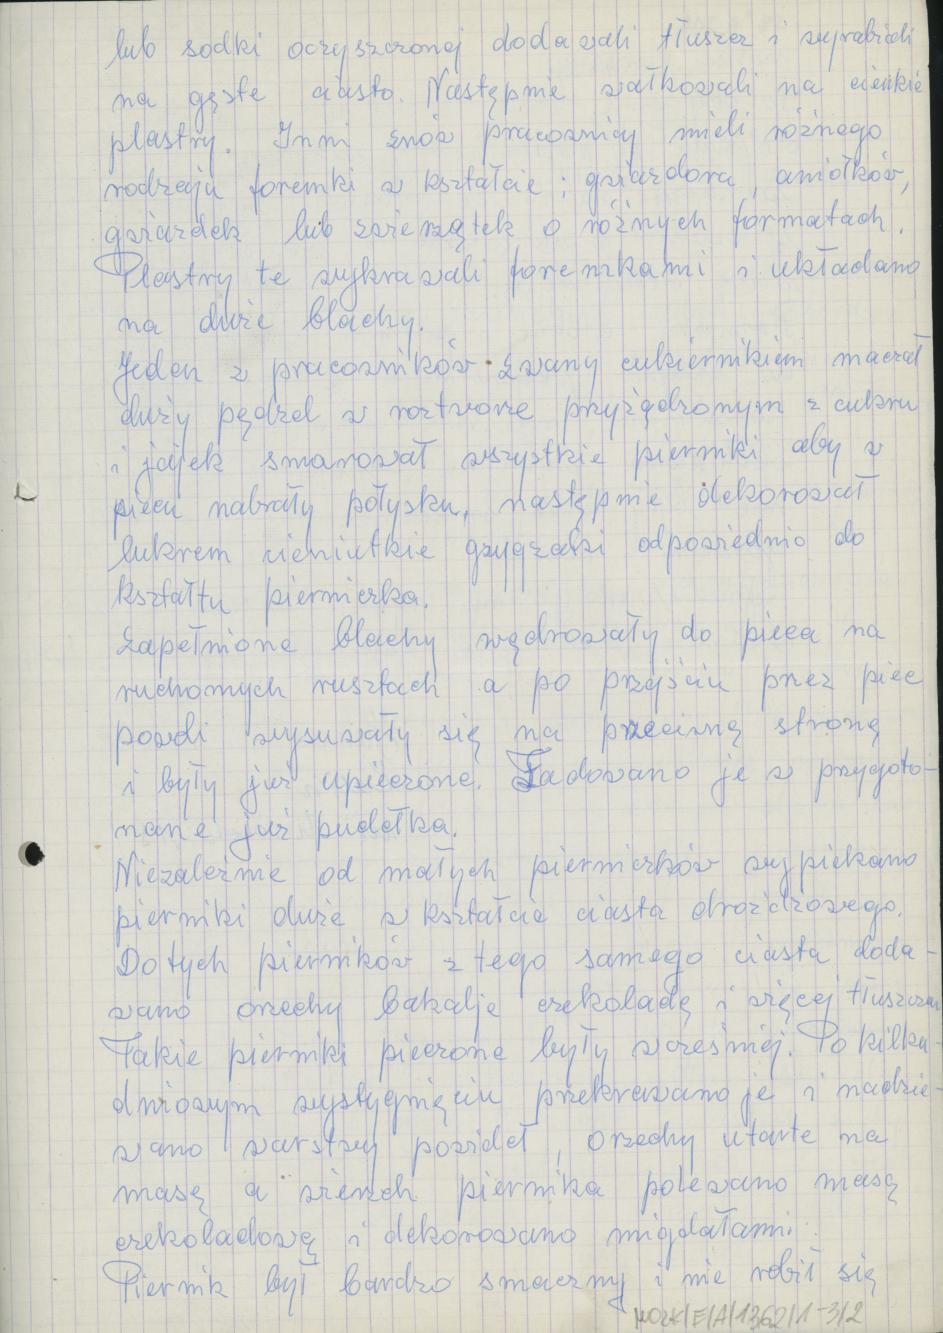 lub sodki oczyszczonej dodawali tłuszcz i wyrabiali
na gęste ciasto. Następnie wałkowali na cienkie
plastry. Inni znów pracownicy mieli różnego
rodzaju foremki w kształcie: gwiazdora, aniołków,
gwiazdek lub zwierzątek o różnych formatach.
Plastry te wykrawali foremkami i układano
na duże blachy.
Jeden z pracowników zwany cukiernikiem maczał
duży pędzel w roztworze przyżądzonym z cukru
i jajek smarował wszystkie pierniki aby w
piecu nabrały połysku, następnie dekorował
lukrem cieniutkie gzygzaki odpowiednio do
kształtu piernierka.
Zapełnione blachy wędrowały do pieca na
ruchomych rusztach a po przejściu przez piec
powoli wysuwały się na przeciwną stronę
i były już upieczone. Ładowano je w przygoto-
wane już pudełka.
Niezależnie od małych pierniczków wypiekano
pierniki duże w kształcie ciasta drożdżowego.
Do tych pierników z tego samego ciasta doda-
wano orzechy bakalje czekoladę i więcej tłuszczu
Takie pierniki pieczone były wcześniej. Po kilku-
dniowym wystygnięciu przekrawano je i nadzie-
wano warstwy powideł, orzechy utarte na
masę a wierzch piernika polewano masą
czekoladową i dekorowano migdałami.
Piernik był bardzo smaczny i nie robił się
MOZK/E/A/1362/1-3/2